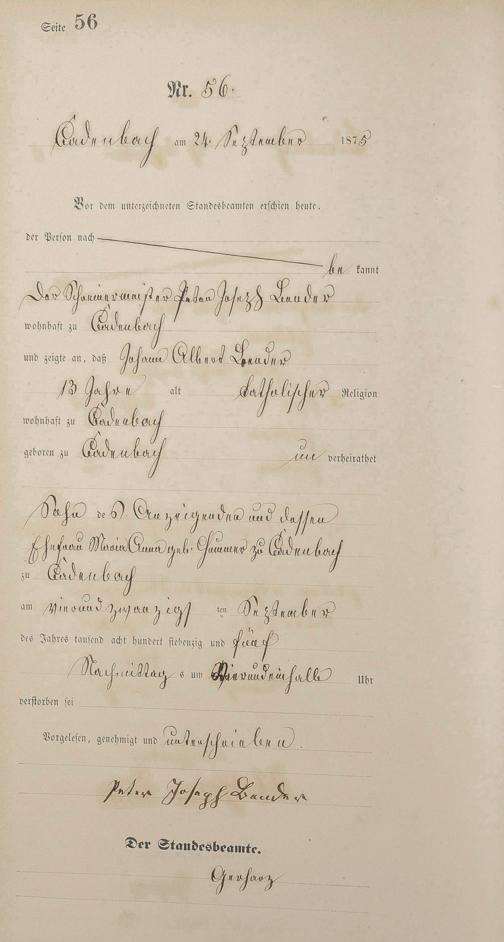 Seite 56
Nr. 56.
Cadenbach am 24. September 1875
Vor dem unterzeichneten Standesbeamten erschien heute,
der Person nach
be kannt
Der Schreinermeister Peter Joseph Bender
wohnhaft zu Cadenbach
und zeigte an, daß Johann Albert Bender
13 Jahre alt katholischer Religion
wohnhaft zu Cadenbach
geboren zu Cadenbach un verheirathet
Sohn des Anzeigenden und dessen
Ehefrau Maria Anna geb. zu Cadenbach
zu Cadenbach
am vierund zwanzigs ten September
des Jahres tausend acht hundert siebenzig und fünf
Nachmittag s um Uhr
verstorben sei
Vorgelesen, genehmigt und unterschrieben.
Peter Joseph Bender
Der Standesbeamte.
Gerharz